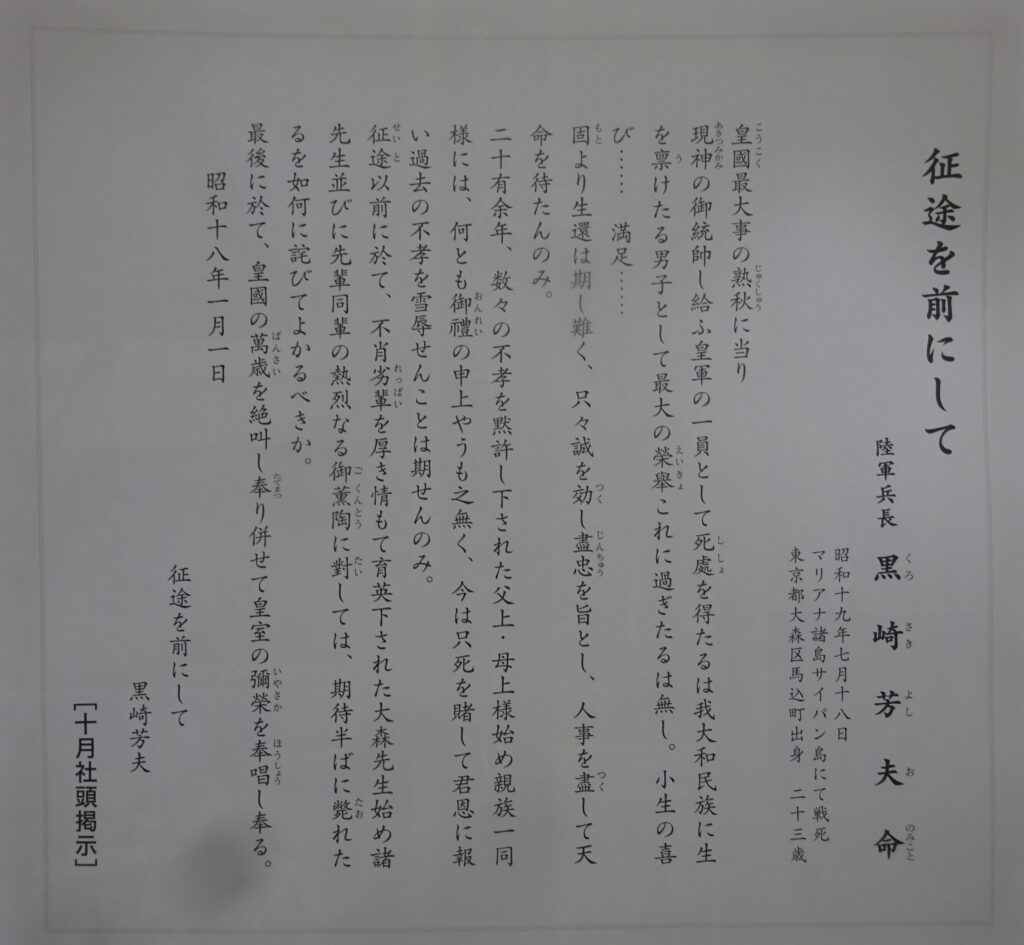 征途を前にして
陸軍兵長 黒崎芳夫命
昭和十九年七月十八日
マリアナ諸島サイパン島にて戦死
東京都大森区馬込町出身 二十三歳
皇國最大事の熟秋に当り
現神の御統帥し給ふ皇軍の一員として死處を得たるは我大和民族に生
を禀けたる男子として最大の榮舉これに過ぎたるは無し。小生の喜
び…… 満足……
固より生還は期し難く、只々誠を効し盡忠を旨とし、人事を盡して天
命を待たんのみ。
二十有余年、数々の不孝を黙許し下された父上・母上様始め親族一同
様には、何とも御禮の申上やうも之無く、今は只死を賭して君恩に報
い過去の不孝を雪辱せんことは期せんのみ。
征途以前に於て、不肖劣輩を厚き情もて育英下された大森先生始め諸
先生並びに先輩同輩の熱烈なる御薫陶に對しては、期待半ばに斃れた
るを如何に詫びてよかるべきか。
最後に於て、皇國の萬歳を絶叫し奉り併せて皇室の彌榮を奉唱し奉る。
昭和十八年一月一日
征途を前にして
黒崎芳夫
［十月社頭掲示］